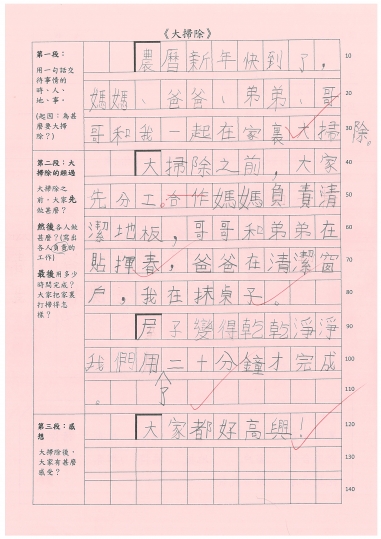 《大掃除》
第一段：
用一句話交
待事情的
時、人、
地、事。
(起因：為甚
麼要大掃
除？)
農曆新年快到了，
10
媽媽、爸爸、弟弟、哥
20
哥和我一起在家裏大掃除。
30
第二段：大
掃除的經過
大掃除之
前，大家先
做甚麼？
然後各人做
甚麼？(寫出
各人負責的
工作)
最後用多少
時間完成？
大家把家裏
打掃得怎
樣？
大掃除之前，大家
40
先分工合作媽媽負責清
50
潔地板，哥哥和弟弟在
60
貼揮春，爸爸在清潔窗
70
户，我在抹桌子。
80
房子變得乾乾淨淨
90
我們用了二十分鐘才完成
100
。
110
第三段：感
想
大掃除後，
大家有甚麼
感受？
大家都好高興！
120
130
140